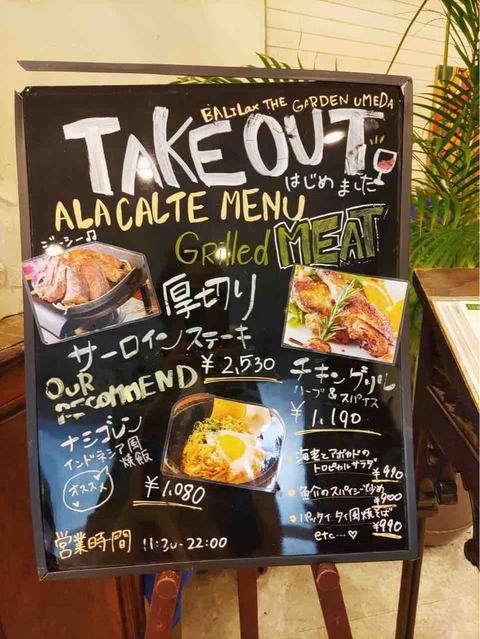 BALILax THE GARDEN UMEDA
TAKE OUT
はじめました
ALACALTE MENU
Grilled MEAT
ジューシー♫
厚切り
サーロインステーキ
¥2,530
チキングリル
ハーブ&スパイス
¥1,190
OUR RECOMMEND
ナシゴレン
インドネシア風
焼飯
オススメ
¥1,080
・海老とアボカドの
トロピカルサラダ
¥990
・魚介のスパイシー炒め
¥900
・パッタイ タイ風焼そば
¥990
etc...♡
営業時間 11:30-22:00